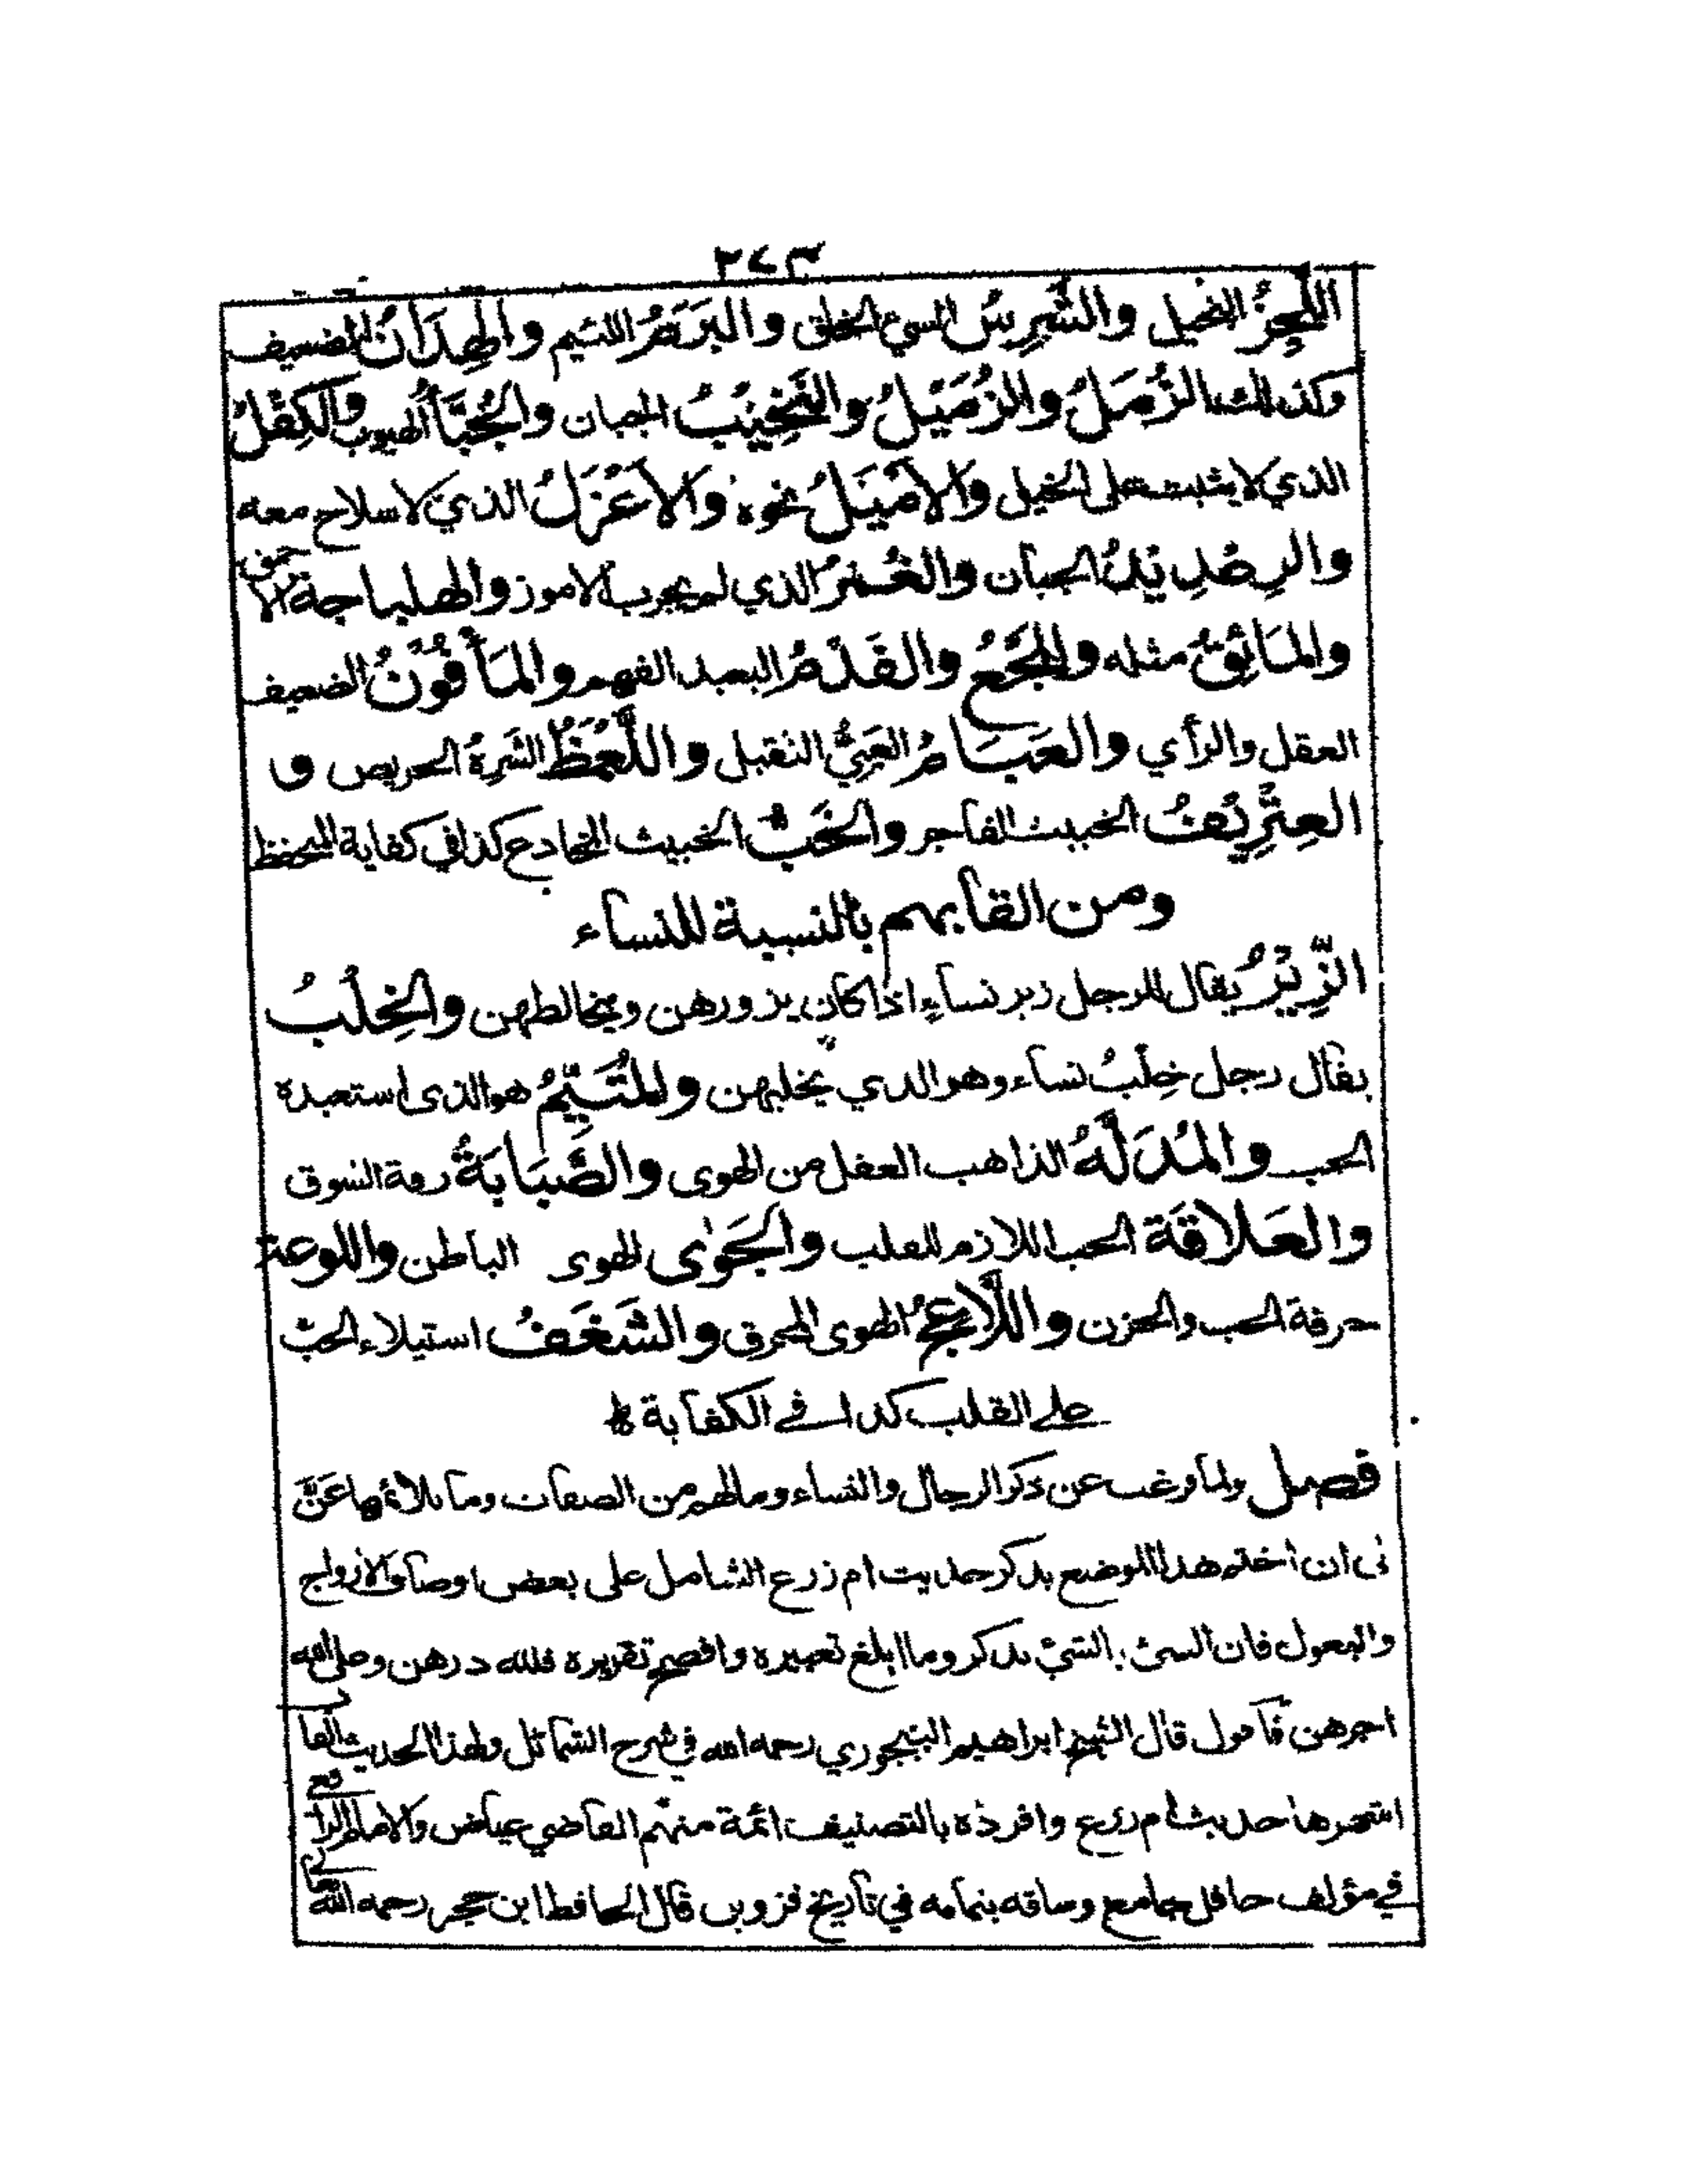 ٢٤٣
اللَّحِزُ البخيل والشَّرِسُ السيئ الخلق والبَرَمُ اللئيم والهِدَانُ الضعيف
وكذلك الزُّمَّلُ والزُّمَّيْلُ والنَّخِيْبُ الجبان والجُبَّأُ الهيوب والكِفْلُ
الذي لا يثبت على الخيل والأَمْيَلُ نحوه والأَعْزَلُ الذي لا سلاح معه
والرِعْدِيْدُ الجبان والغُمْرُ الذي لم يجرب الامور والهلباجة الاحمق
والمَائِقُ مثله والفَدْمُ البعيد الفهم والمَأْفُوْنُ الضعيف
العقل والرأي والعَبَامُ العَيِيُّ الثقيل واللَّعْمَظُ الشَرِهُ الحريص و
العِتْرِيْفُ الخبيث الفاجر والخَبُّ الخبيث الخادع كذا في كفاية المتحفظ
ومن القابهم بالنسبة للنساء
الزِّيْرُ يقال للرجل زير نساءٍ اذا كان يزورهن ويخالطهن والخِلْبُ
يقال رجل خِلْبُ نساء وهو الذي يخلبهن والمُتَيَّمُ هو الذى استعبده
الحب والمُدَلَّهُ الذاهب العقل من الهوى والصَّبَابَةُ رقة الشوق
والعَلاقَة الحب اللازم للقلب والجَوٰى الهوى الباطن واللوعة
حرقة الحب والحزن واللَّاعِجُ الهوى المحرق والشَغَفُ استيلاء الحبّ
على القلب كذا في الكفاية
فصل ولما فرغت عن ذكر الرجال والنساء ومالهم من الصفات وما يلائمها عَنَّ
لى ان اختم هذا الموضع بذكر حديث ام زرع الشامل على بعض اوصاف الازواج
والبعول فان الشئ بالشئ يذكر وما ابلغ تعبيره وافصح تقريره فلله درهن وعلى الله
اجرهن فأقول قال الشيخ ابراهيم البيجوري رحمه الله في شرح الشمائل ولهذا الحديث القاب
اشهرها حديث ام زرع وافرده بالتصنيف ائمة منهم القاضي عياض والامام الرافعي
في مؤلف حافل جامع وساقه بتمامه في تاريخ قزوين قال الحافظ ابن حجر رحمه الله تعالى